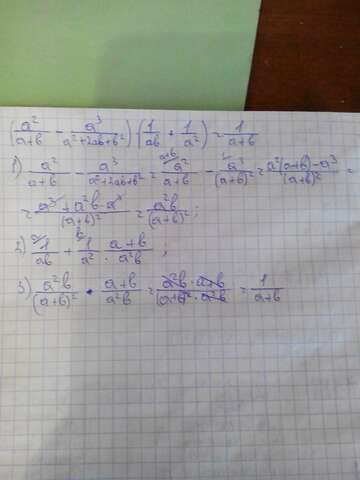 (a²/(a+b) - a³/(a²+2ab+b²)) · (1/ab + 1/a²) = 1/(a+b)
1) a²/(a+b) - a³/(a²+2ab+b²) = a+b⁄ a²/(a+b) - 1⁄ a³/(a+b)² = (a²(a+b)-a³)/(a+b)² =
= (a³+a²b-a³)/(a+b)² = a²b/(a+b)² ;
2) a⁄ 1/ab + b⁄ 1/a² · (a+b)/a²b ;
3) a²b/(a+b)² · (a+b)/a²b = (a²b · a+b)/((a+b)² · a²b) = 1/(a+b)